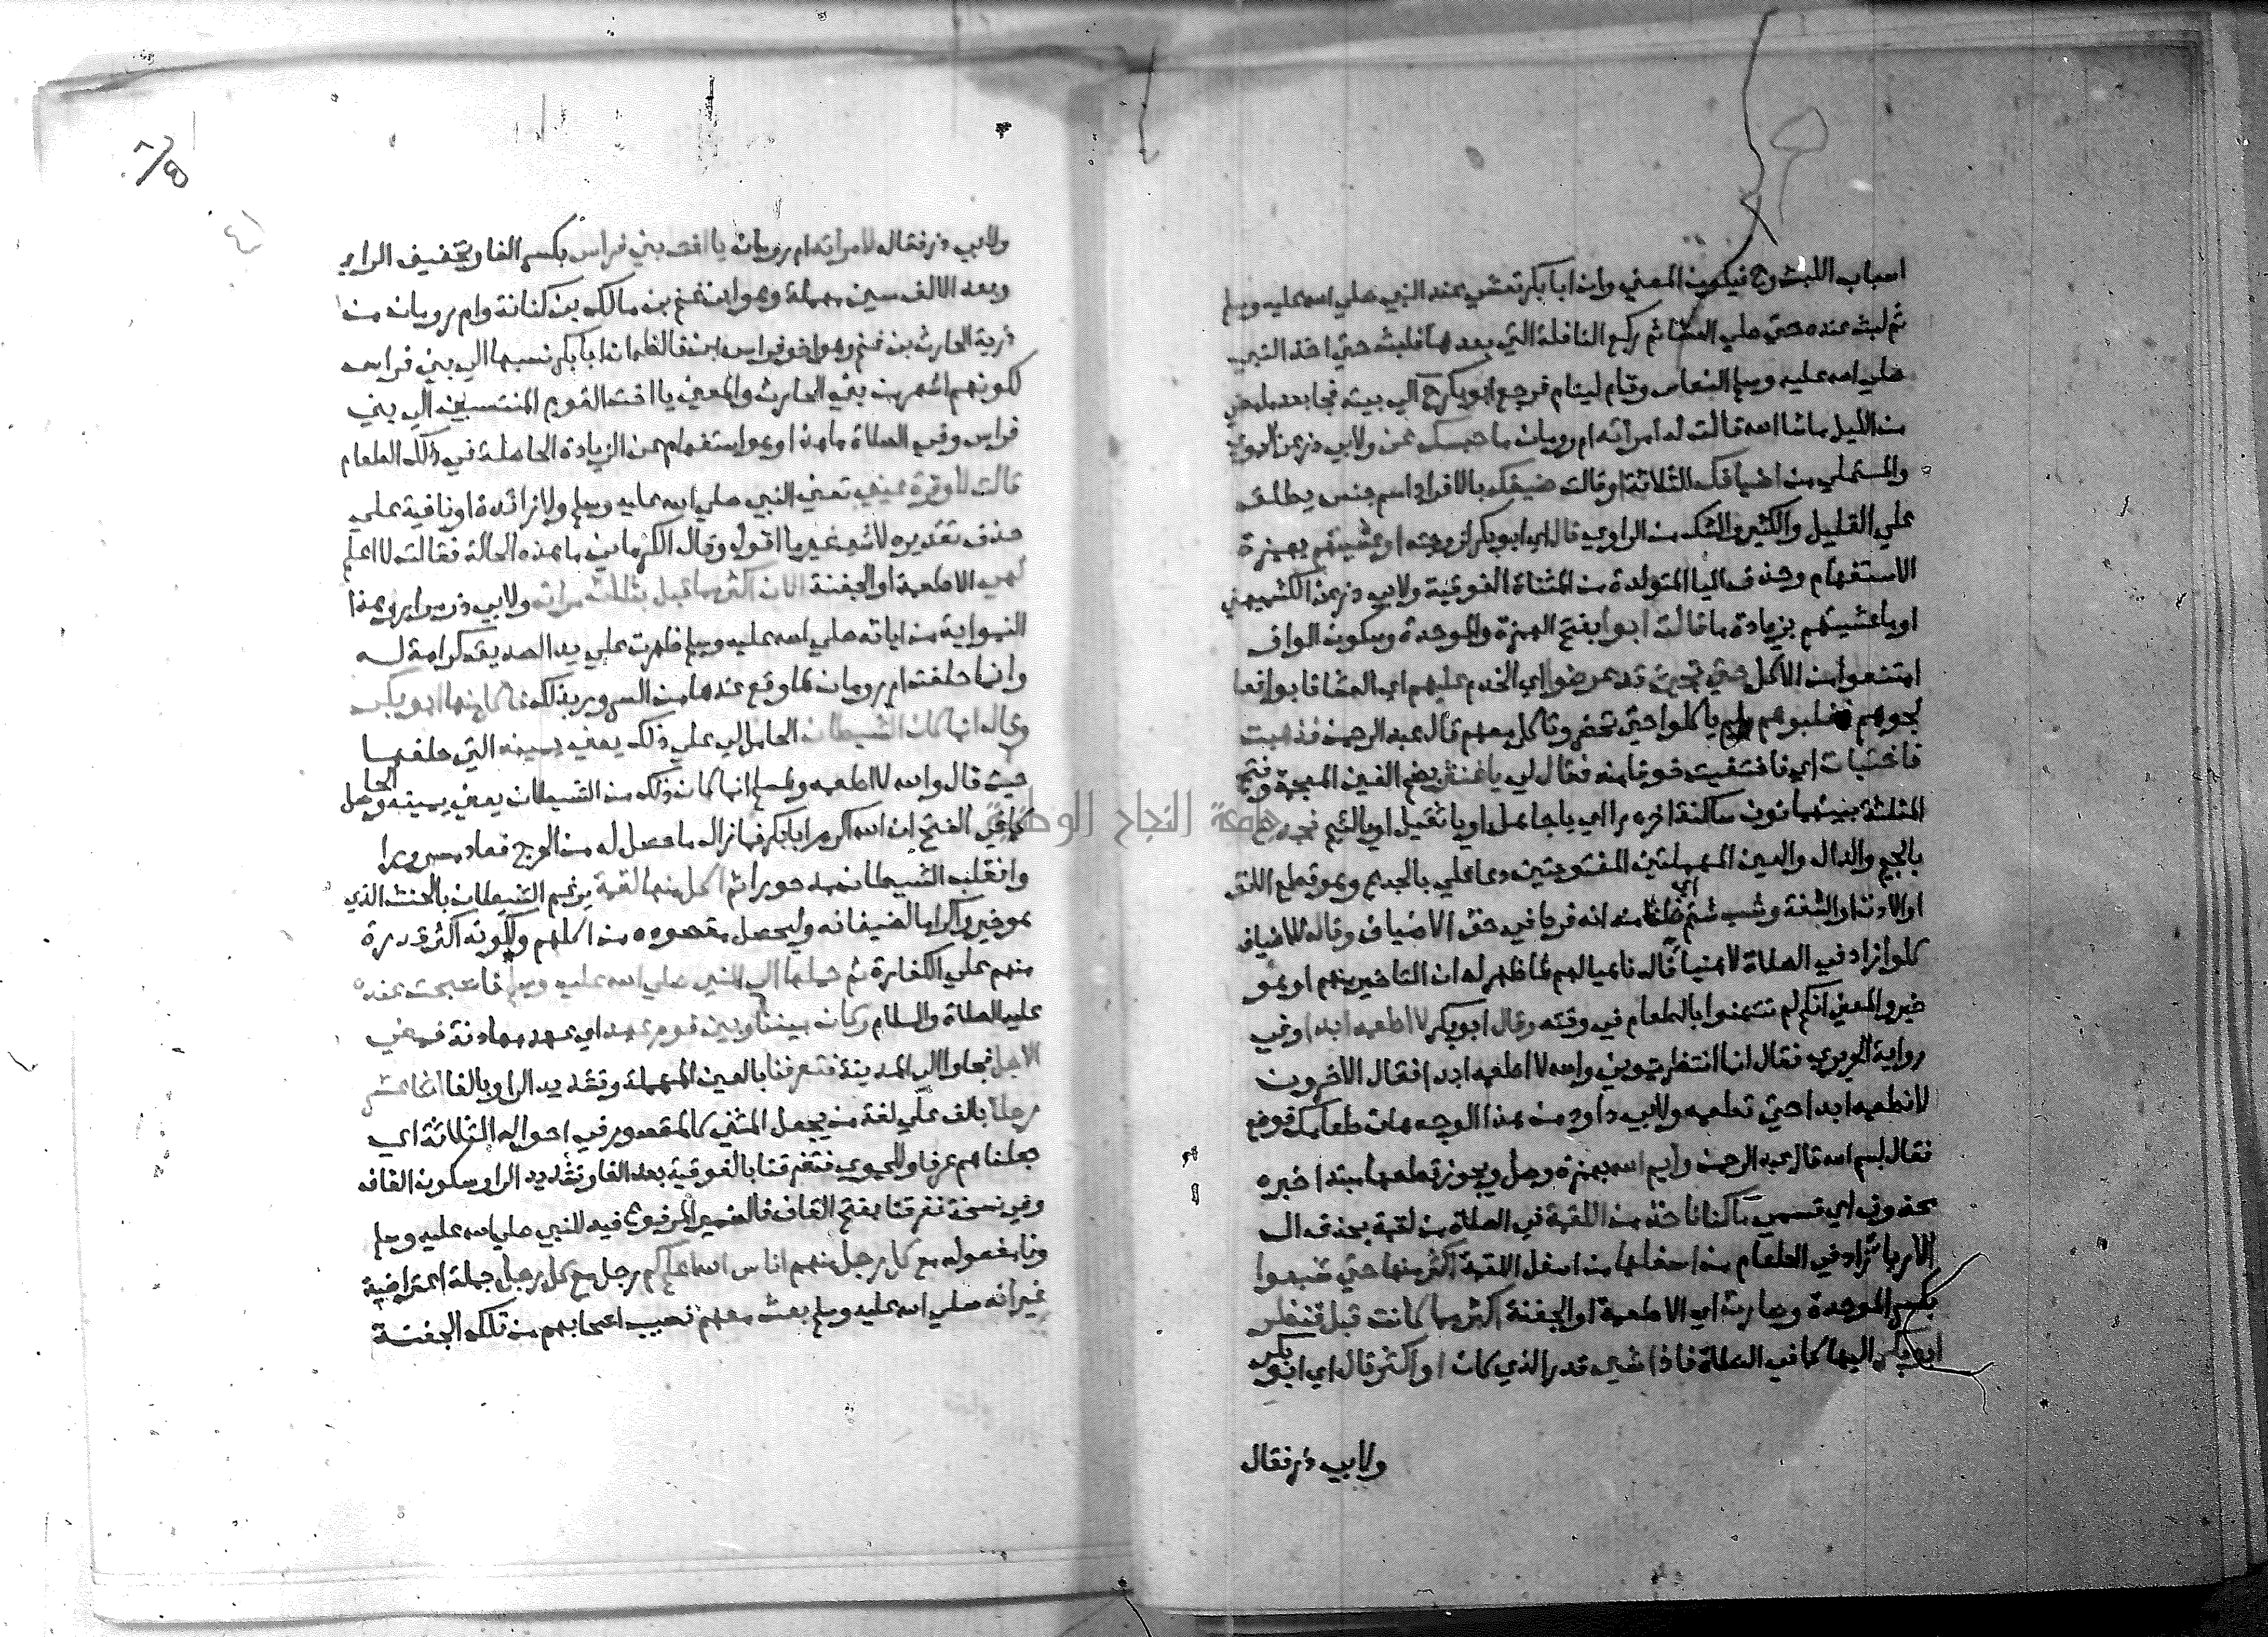 اسباب اللبث وح فيكون المعني وان ابا بكر تعشي عند النبي صلي الله عليه وسلم
ثم لبث عنده حتي صلي العشا ثم ركع النافلة التي بعدها فلبث حتي اخذ النبي
صلي الله عليه وسلم النعاس وقام لينام فرجع ابو بكر ح الي بيته فجا بعد ما مضي
من الليل ما شا الله قالت له امراته ام رومان ما حبسك عن ولابي ذر عن الحموي
والمستملي من اضيافك الثلاثة او قالت ضيفك بالافراد اسم جنس يطلق
علي القليل والكثير والشك من الراوي قال اي ابو بكر لزوجته اوعشيتهم بهمزة
الاستفهام وحذف اليا المتولدة من المثناة الفوقية ولابي ذر عن الكشميهني
اوما عشيتهم بزيادة ما قالت ابوا بفتح الهمزة والموحدة وسكون الواو
امتنعوا من الاكل حتي تجيئ قد عرضوا اي الخدم عليهم اي العشا فابوا فعا
لجوهم فغلبوهم ولم ياكلوا حتي تحضر وتاكل معهم قال عبد الرحمن فذهبت
فاختبات اي فاختفيت خوفا منه فقال لي يا غنثر بضم الغين المعجمة وفتح
المثلثة بينهما نون ساكنة اخره را اي يا جاهل او يا ثقيل او يا لئيم فجدع
بالجيم والدال والعين المهملتين المفتوحتين دعا علي بالجدع وهو قطع الانف
او الاذن او الشفة وسب شتم اي ظنا منه انه فرط في حق الاضياف وقال للاضياف
كلوا زاد في الصلاة لا هنيا قال تاديبا لهم لما ظهر له ان التاخير منهم او هو
خبر والمعني انكم لم تتهنوا بالطعام في وقته وقال ابو بكر لا اطعمه ابدا وفي
رواية الجريري فقال انما انتظرتموني والله لا اطعمه ابدا فقال الاخرون
لا نطعمه ابدا حتي تطعمه ولابي داود من هذا الوجه هات طعامك فوضع
فقال بسم الله قال عبد الرحمن وايم الله بهمزة وصل ويجوز قطعها مبتدا خبره
محذوف اي قسمي ما كنا ناخذ من اللقمة في الصلاة من لقمة بحذف ال
الا ربا زاد في الطعام من اسفلها من اسفل اللقمة اكثر منها حتي شبعوا
بكسر الموحدة وصارت اي الاطعمة او الجفنة اكثر مما كانت قبل فنظر
ابو بكر اليها كما في الصلاة فاذا شي قدر الذي كان او اكثر قال اي ابو بكر
ولابي ذر فقال
ولابي ذر فقال لامراته ام رومان يا اخت بني فراس بكسر الفا وتخفيف الراء
وبعد الالف سين مهملة وهو ابن غنم بن مالك بن كنانة وام رومان من
ذرية الحارث بن غنم وهو اخو فراس بن غنم فالظاهر ان ابا بكر نسبها الي بني فراس
لكونهم اشهر من بني الحارث والمعني يا اخت القوم المنتسبين الي بني
فراس وفي الصلاة ما هذا وهو استفهام عن الزيادة الحاصلة في ذلك الطعام
قالت لا وقرة عيني تعني النبي صلي الله عليه وسلم ولا زائدة او نافية علي
حذف تقديره لا شي غير ما اقول وقال الكرماني ما هذه الحالة فقالت لا اعلم
لهي الاطعمة او الجفنة الان اكثر مما قبل بثلاث مرات ولابي ذر مرار وهذا
النمو اية من اياته صلي الله عليه وسلم ظهرت علي يد الصديق كرامة له
وانما حلفت ام رومان لما وقع عندها من السرور بذلك فاكل منها ابو بكر
وقال انما كان الشيطان الحامل لي علي ذلك يعني يمينه التي حلفها
حيث قال والله لا اطعمه ولمسلم انما كان ذلك من الشيطان يعني يمينه والحاصل
كما في الفتح ان الله اكرم ابا بكر فازال ما حصل له من الحرج فعاد مسرورا
وانقلب الشيطان مدحورا ثم اكل منها لقمة يرغم الشيطان بالحنث الذي
هو خير واكراما لضيفانه وليحصل مقصوده من اكلهم ولكونه اكثر قدرة
منهم علي الكفارة ثم حملها الي النبي صلي الله عليه وسلم فاصبحت عنده
عليه الصلاة والسلام وكان بيننا وبين قوم عهد اي عهد مهادنة فمضي
الاجل فجاوا الي المدينة فتعرفنا بالعين المهملة وتشديد الرا وبالفا اثنا عشر
رجلا بالف علي لغة من يجعل المثني كالمقصور في احواله الثلاثة اي
جعلناهم عرفا وللحموي فتفرقنا بالفوقية بعد الفا وتشديد الرا وسكون القاف
وفي نسخة ففرقنا بفتح القاف فالضمير المرفوع فيه للنبي صلي الله عليه وسلم
ونا مفعوله مع كل رجل منهم اناس الله اعلم كم رجل مع كل رجل جملة اعتراضية
غير انه صلي الله عليه وسلم بعث معهم نصيب اصحابهم من تلك الجفنة
جامعة النجاح الوطنية